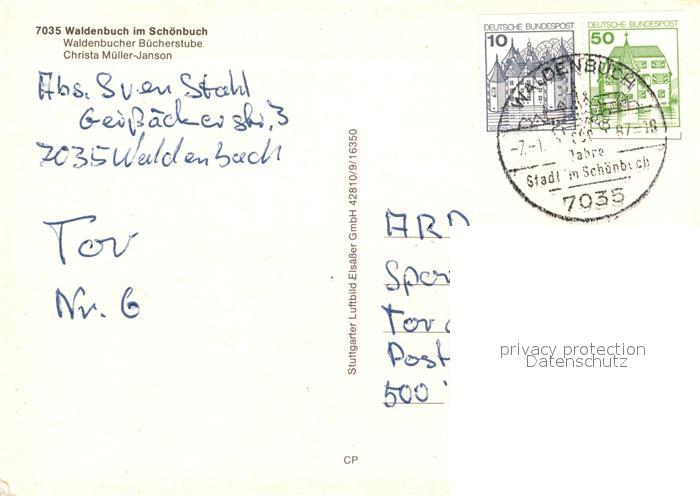 7035 Waldenbuch im Schönbuch
Waldenbucher Bücherstube
Christa Müller-Janson
Abs. Sven Stahl
Geißäckerstr. 3
7035 Waldenbach
Tor
Nr. 6
Stuttgarter Luftbild Elsäßer GmbH 42810/9/16350
CP
10 DEUTSCHE BUNDESPOST
50 DEUTSCHE BUNDESPOST
WALDENBUCH
-7.-1. 87-18
Jahre
Stadt im Schönbuch
7035
ARD
Spor
Tor
Post
500
privacy protection
Datenschutz